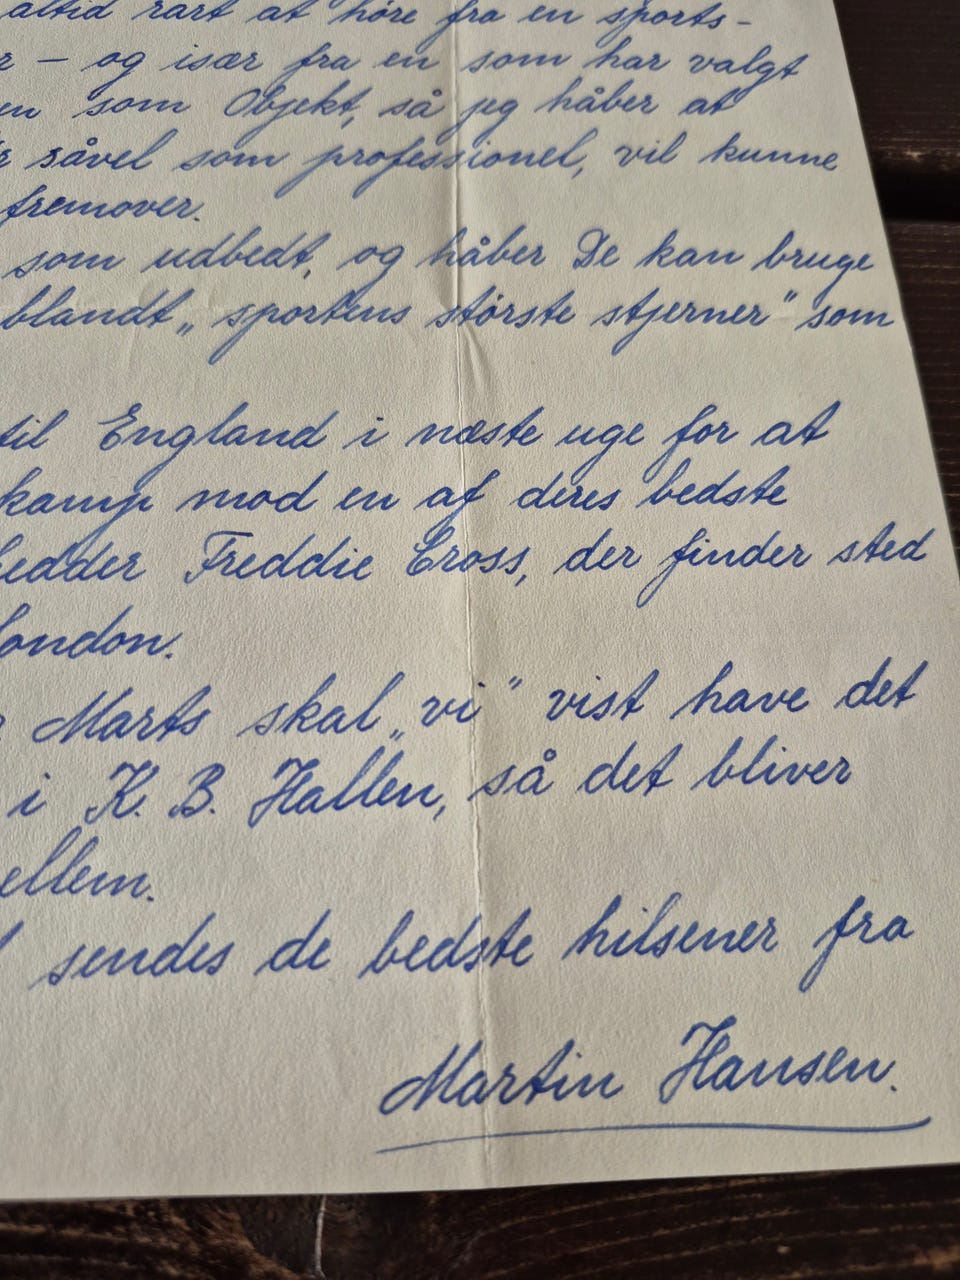 altid rart at høre fra en sports-
– og især fra en som har valgt
som Objekt, så jeg håber at
såvel som professionel, vil kunne
fremover.
som udbedt, og håber De kan bruge
blandt „sportens største stjerner" som
til England i næste uge for at
kamp mod en af deres bedste
hedder Freddie Cross, der finder sted
London.
Marts skal „vi" vist have det
i K. B. Hallen, så det bliver
sendes de bedste hilsener fra
Martin Hansen.